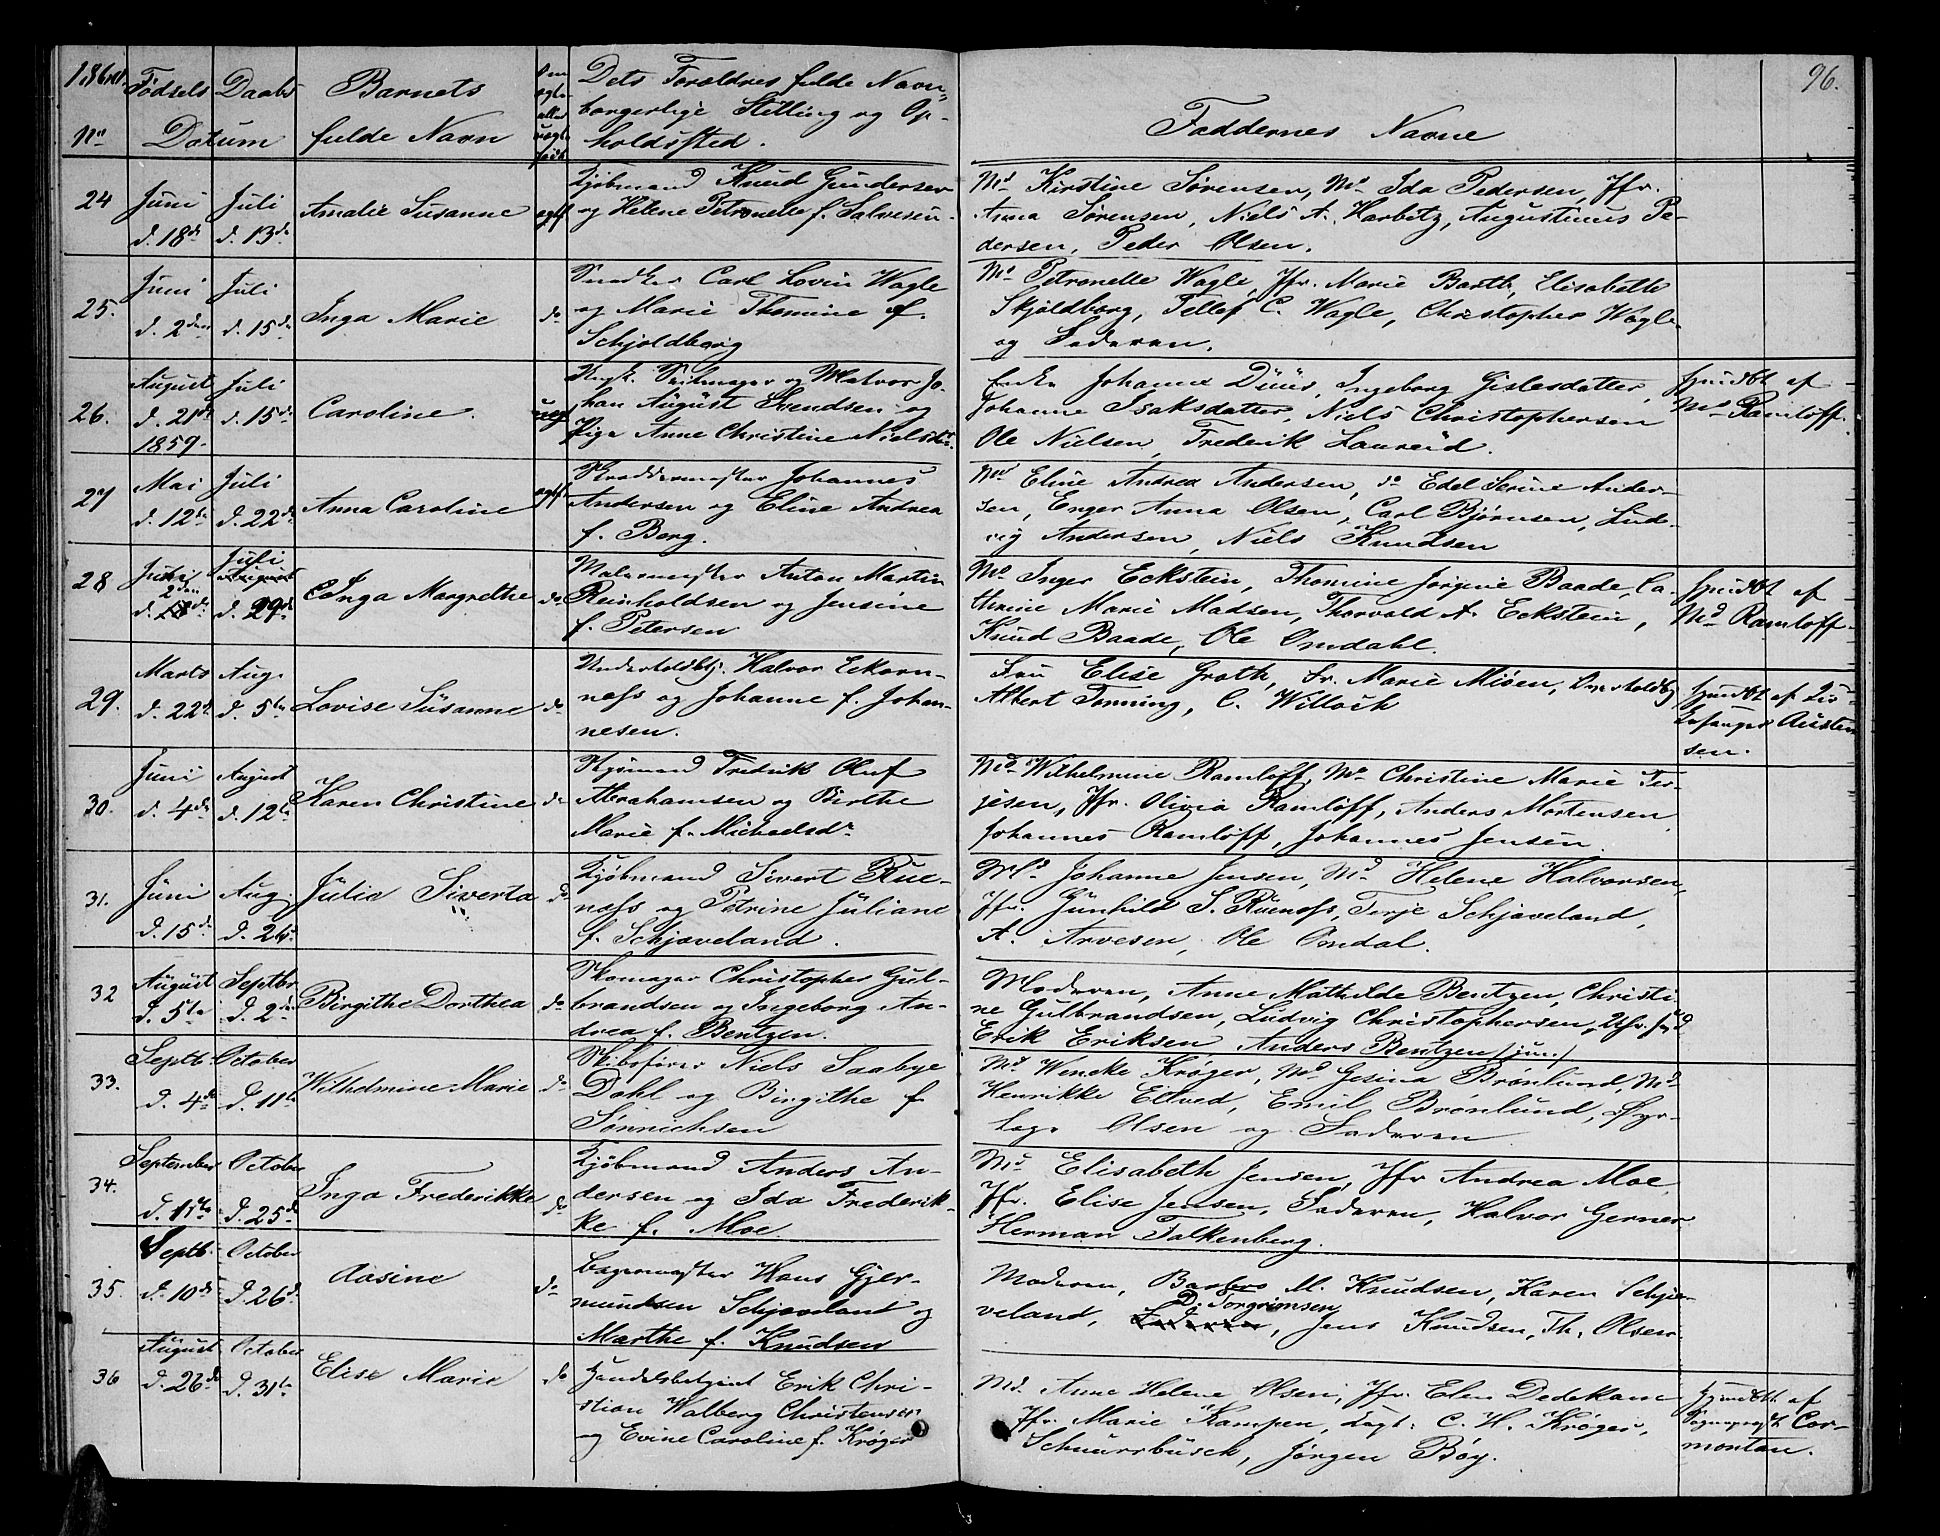 1860.
Fødsels Daabs Barnets Dets Forældres fulde Navn,
No Datum fulde Navn borgerlige Stilling og Op-
holdssted.
Faddernes Navne
96.
24 Juni d. 18de Juli d. 13de Amalie Susanne ægtf
Kjøbmand Knud Gundersen
og Helene Petronelle f. Salvesen
Md Kirstine Sørensen, Md Ida Pedersen, Jfr.
Anna Sørensen, Niels A. Harbitz, Augustinus Pe-
dersen, Peder Olsen.
25. Juni d. 2den Juli d. 15de Inga Marie do
Snedker Carl Lovin Wagle
og Marie Thomine f.
Schjoldborg
Md Petronelle Wagle, Jfr. Marie Barth, Elisabeth
Skjøldborg, Tellef C. Wagle, Christopher Wagle
og Faderen.
26. August d. 21de 1859. Juli d. 15de Caroline. uægt
Ungk. Seilmager og Matros Jo-
han August Svendsen og
Pige Anne Christine Nielsdtr.
Enke Johanne Düüs, Ingeborg Gislesdatter,
Johanne Isaksdatter, Niels Christophersen
Ole Nielsen, Frederik Laureid.
hjmdbt af
Md Ramløff.
27 Mai d. 12te Juli d. 22de Anna Caroline ægtf.
Skræddermester Johannes
Andersen og Eline Andrea
f. Berg.
Md Eline Andrea Andersen, do Edel Serine Ander-
sen, Enger Anna Olsen, Carl Bjørnsen, Lud-
vig Andersen, Niels Knudsen
28 Juni 2den Juli d. 29de Inga Margrethe do
Malermester Anton Martin
Reinholdsen og Jensine
f. Petersen
Md Inger Eckstein, Thomine Jørgine Baade, Ca-
thrine Marie Madsen, Thorvald A. Eckstein,
Knud Baade, Ole Omdahl.
hjmdbt af
Md Ramløff.
29. Marts d. 22de Aug. d. 5te Lovise Süsanne do
Underholdbtj. Halvor Eckorn-
næss og Johanne f. Johan-
nesen.
Fru Elise Groth, Fr. Marie Misen,
Albert Tønning, C. Willoch
hjmdbt af
Austen-
sen.
30. Juni d. 4de August d. 12te Karen Christine do
Sjømand Fredrik Oluf
Abrahamsen og Birthe
Marie f. Michaelsdr
Md Wilhelmine Ramløff, Md Christine Marie Ter-
jesen, Jfr. Olivia Ramløff, Anders Mortensen
Johannes Ramløff, Johannes Jensen.
31. Juni d. 15de Aug. d. 26de Jülie Siverta do
Kjøbmand Sivert Rue-
næss og Petrine Jüliane
f. Schjæveland.
Md Johanne Jensen, Md Helene Halvorsen,
Jfr. Gunhild S. Rüenæss, Terje Schjæveland,
A. Arvesen, Ole Omdal.
32 August d. 5te Septbr d. 2den Birgithe Dorthea do
Skomager Christopher Gul-
brandsen og Ingeborg An-
drea f. Bentzen.
Moderen, Anne Mathilde Bentzen, Christi-
ne Gulbrandsen, Ludvig Christophersen,
Erik Eriksen Anders Bentzen /jun/
33. Septb. d. 4de October d. 11te Wilhelmine Marie do
Skibsfører Niels Saabye
Dahl og Birgithe f
Sønnichsen
Md Wencke Krøger, Md Gesina Brønlund, Md
Henrikke Eitved, Emil Brønlund,
Olsen og Faderen
34. September d. 11te October d. 25de Inga Frederikke do
Kjøbmand Anders An-
dersen og Ida Frederik-
ke f. Moe.
Md Elisabeth Jensen, Jfr Andrea Moe,
Jfr. Elise Jensen, Faderen, Halvor Gerner
Herman Falkenberg.
35. Septb. d. 10de October d. 26de Aasine do
Bagermester Hans Gjer-
mundsen Schjæveland og
Marthe f. Knudsen
Moderen, Barbro M. Knudsen, Karen Schjæ-
veland, D. Torgrimsen, Jens Knudsen, Th. Olsen.
36 August d. 26de October d. 31te Elise Marie do
Handelsbetjent Erik Chri-
stian Walberg Christensen
og Evine Caroline f. Krøger
Md. Anne Helene Olsen, Jfr. Elen Dedekam
Jfr. Marie Kampen, Capt. C. H. Krøger,
Schnurrbusch, Jørgen Bøy.
hjmdbt af
Sognepræst Cor-
montan.